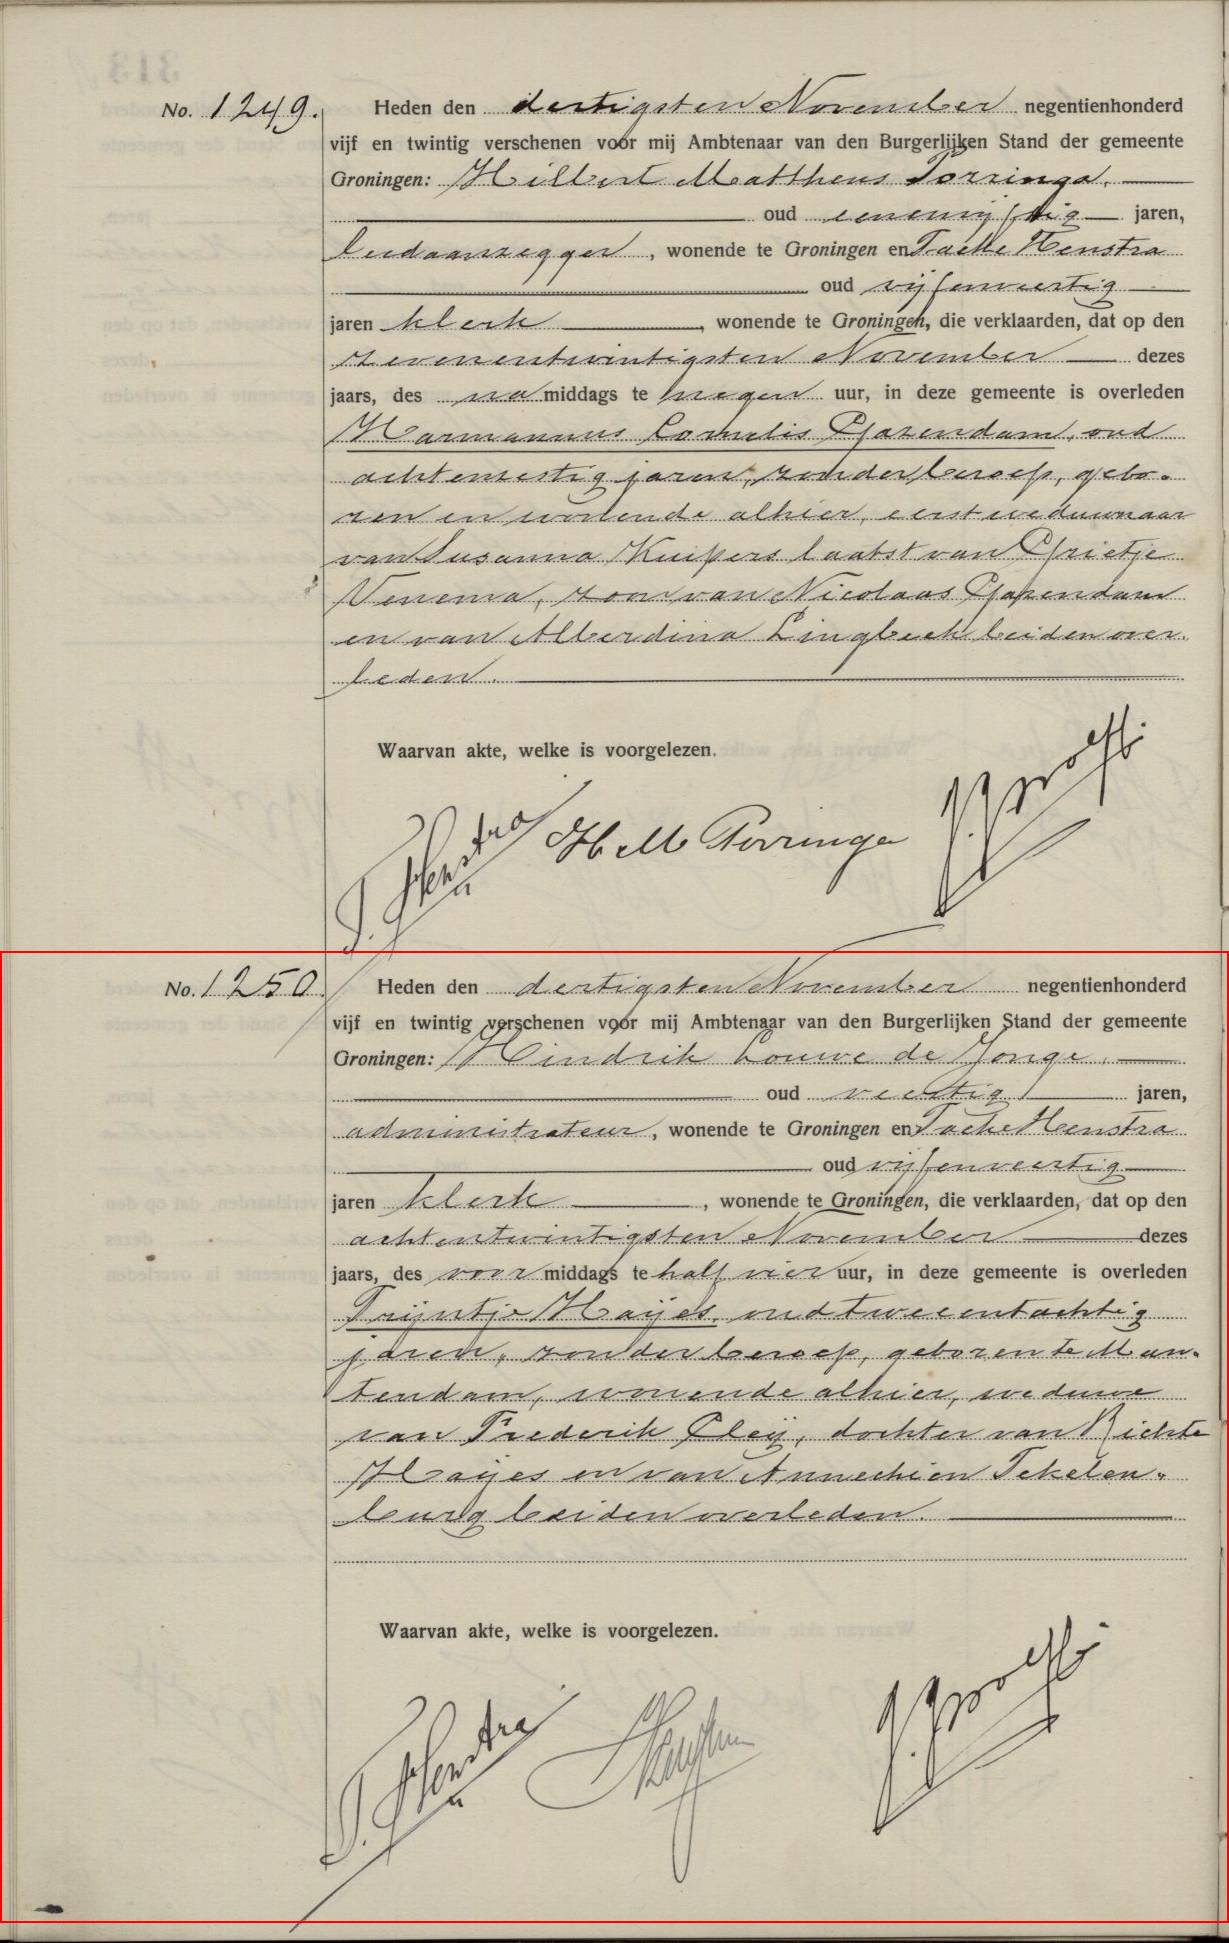 No. 1249. Heden den dertigsten November negentienhonderd
vijf en twintig verschenen voor mij Ambtenaar van den Burgerlijken Stand der gemeente
Groningen: Hilbert Mattheus Porringa,
oud eenenvijftig jaren,
leedaanzegger, wonende te Groningen en Taeke Henstra
oud vijfenveertig
jaren klerk, wonende te Groningen, die verklaarden, dat op den
zevenentwintigsten November dezes
jaars, des na middags te negen uur, in deze gemeente is overleden
Harmannus Cornelis Gazendam, oud
achtenzestig jaren, zonder beroep, gebo-
ren en wonende alhier, eerst weduwnaar
van Susanna Kuipers laatst van Grietje
Venema, zoon van Nicolaas Gazendam
en van Alberdina Lingbeek beiden over-
leden.
Waarvan akte, welke is voorgelezen.
T. Henstra H M Porringa
No. 1250 Heden den dertigsten November negentienhonderd
vijf en twintig verschenen voor mij Ambtenaar van den Burgerlijken Stand der gemeente
Groningen: Hindrik Louwe de Jonge,
oud veertig jaren,
administrateur, wonende te Groningen en Taeke Henstra
oud vijfenveertig
jaren klerk, wonende te Groningen, die verklaarden, dat op den
achtentwintigsten November dezes
jaars, des voor middags te half vier uur, in deze gemeente is overleden
Trijntje Haijes, oud tweeentachtig
jaren, zonder beroep, geboren te Mun-
tendam, wonende alhier, weduwe
van Frederik Pleij, dochter van Richte
Haijes en van Annechien Tekelen-
burg beiden overleden.
Waarvan akte, welke is voorgelezen.
T. Henstra